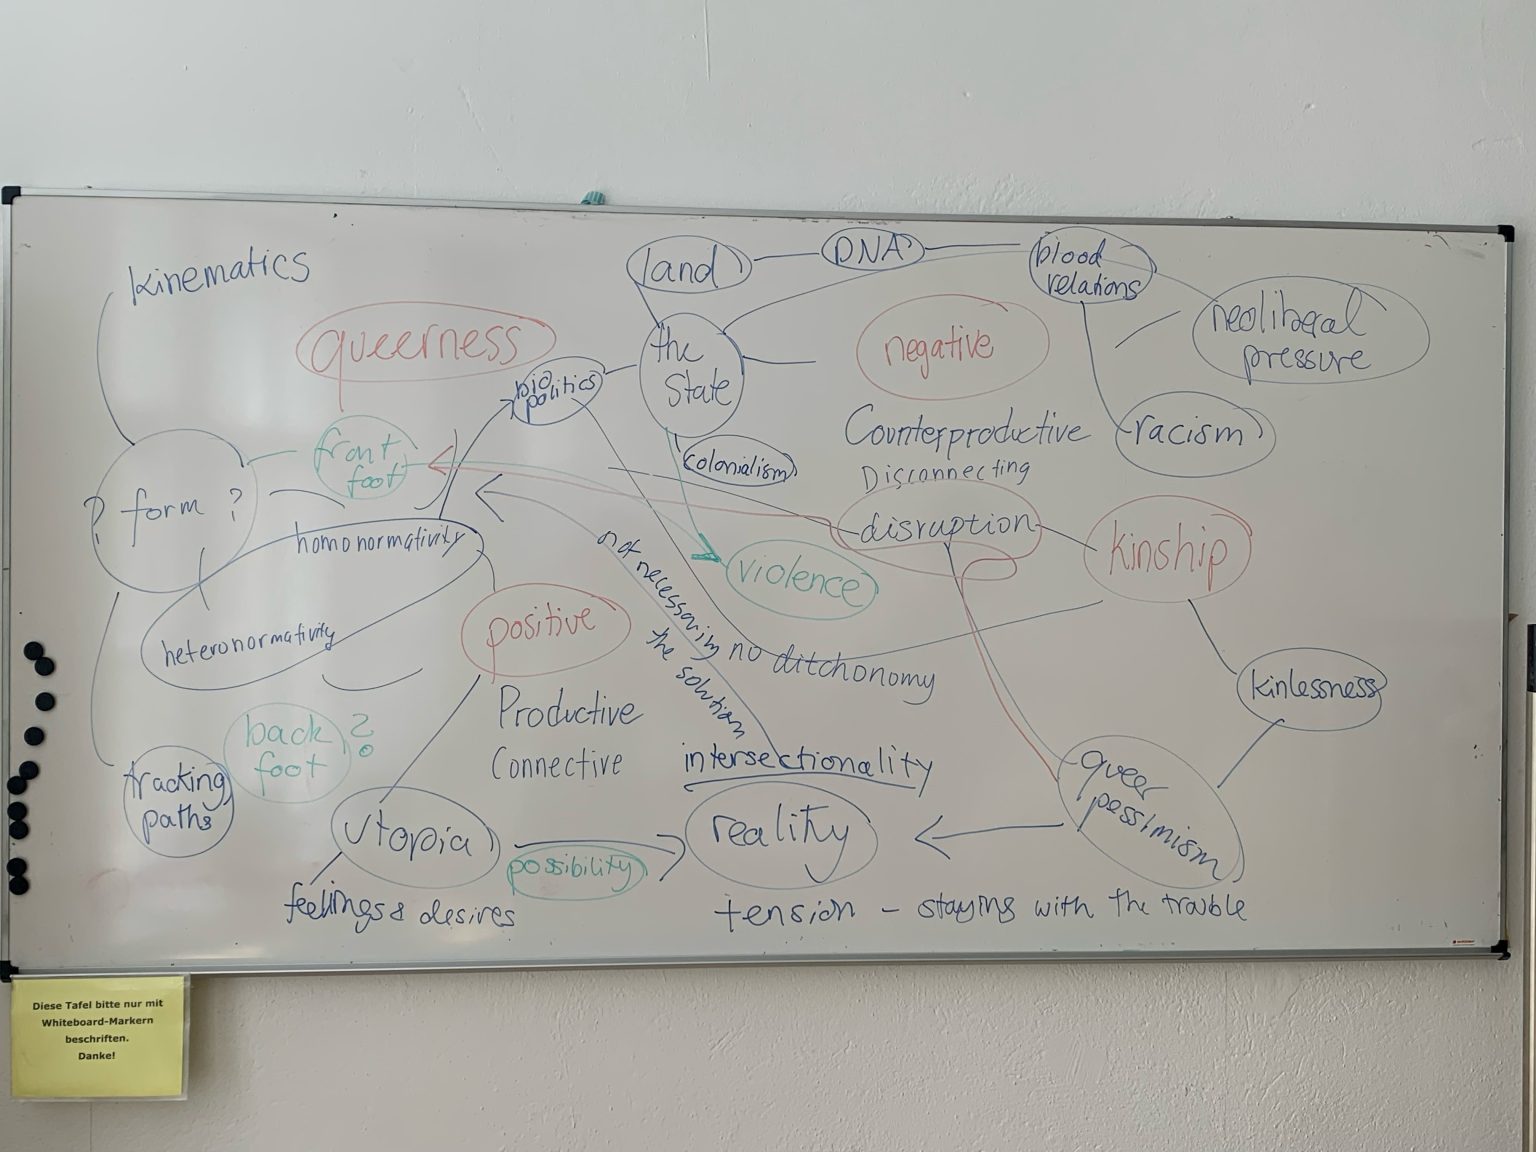 kinematics
land
DNA
blood
relations
neoliberal
pressure
queerness
bio
politics
the
State
negative
front
foot
colonialism
Counterproductive
Disconnecting
racism
? form ?
homonormativity
disruption
kinship
violence
heteronormativity
positive
not necessarily
the solution
no ditchonomy
kinlessness
back
foot
?
Productive
Connective
intersectionality
tracking
paths
utopia
possibility
reality
queer
pessimism
feelings & desires
tension - staying with the trouble
Diese Tafel bitte nur mit
Whiteboard-Markern
beschriften.
Danke!